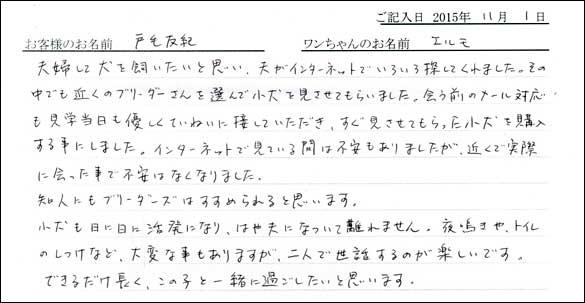 ご記入日 2015年 11月 1日
お客様のお名前 戸毛友紀 ワンちゃんのお名前 エルモ
夫婦して犬を飼いたいと思い、夫がインターネットでいろいろ探してくれました。その
中でも近くのブリーダーさんを選んで小犬を見させてもらいました。会う前のメール対応
も見学当日も優しくていねいに接していただき、すぐ見させてもらった小犬を購入
する事にしました。インターネットで見ている間は不安もありましたが、近くで実際
に会った事で不安はなくなりました。
知人にもブリーダーズはすすめられると思います。
小犬も日に日に活発になり、はや夫になついて離れません。夜鳴きや、トイレ
のしつけなど、大変な事もありますが、二人で世話するのが楽しいです。
できるだけ長く、この子と一緒に過ごしたいと思います。